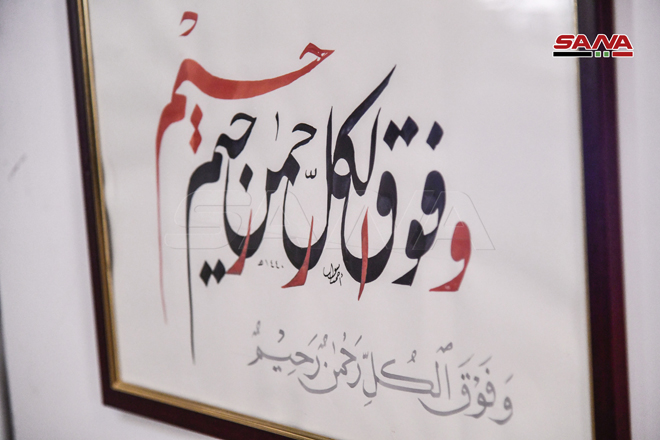 SANA
وفوق الكل رحمن رحيم
١٤٤٠هـ
وَفَوْقَ الكُلِّ رَحْمٰنٌ رَحِيْمٌ
SANA